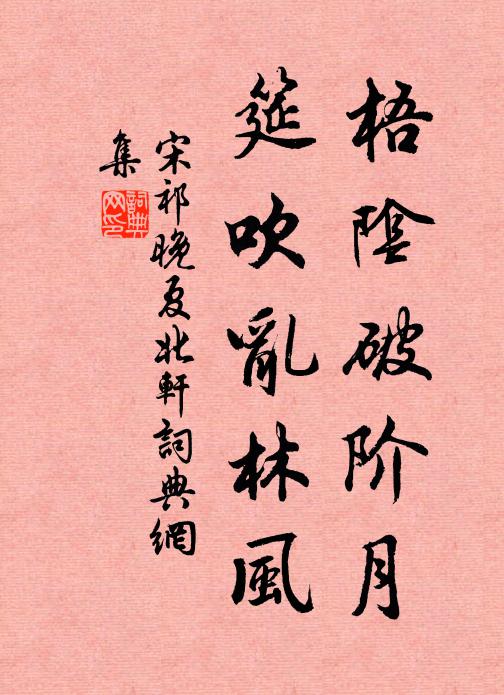 梧陰破阶月
筵吹亂林風
宋祁晚夏北軒詞典網
集
詞典网印